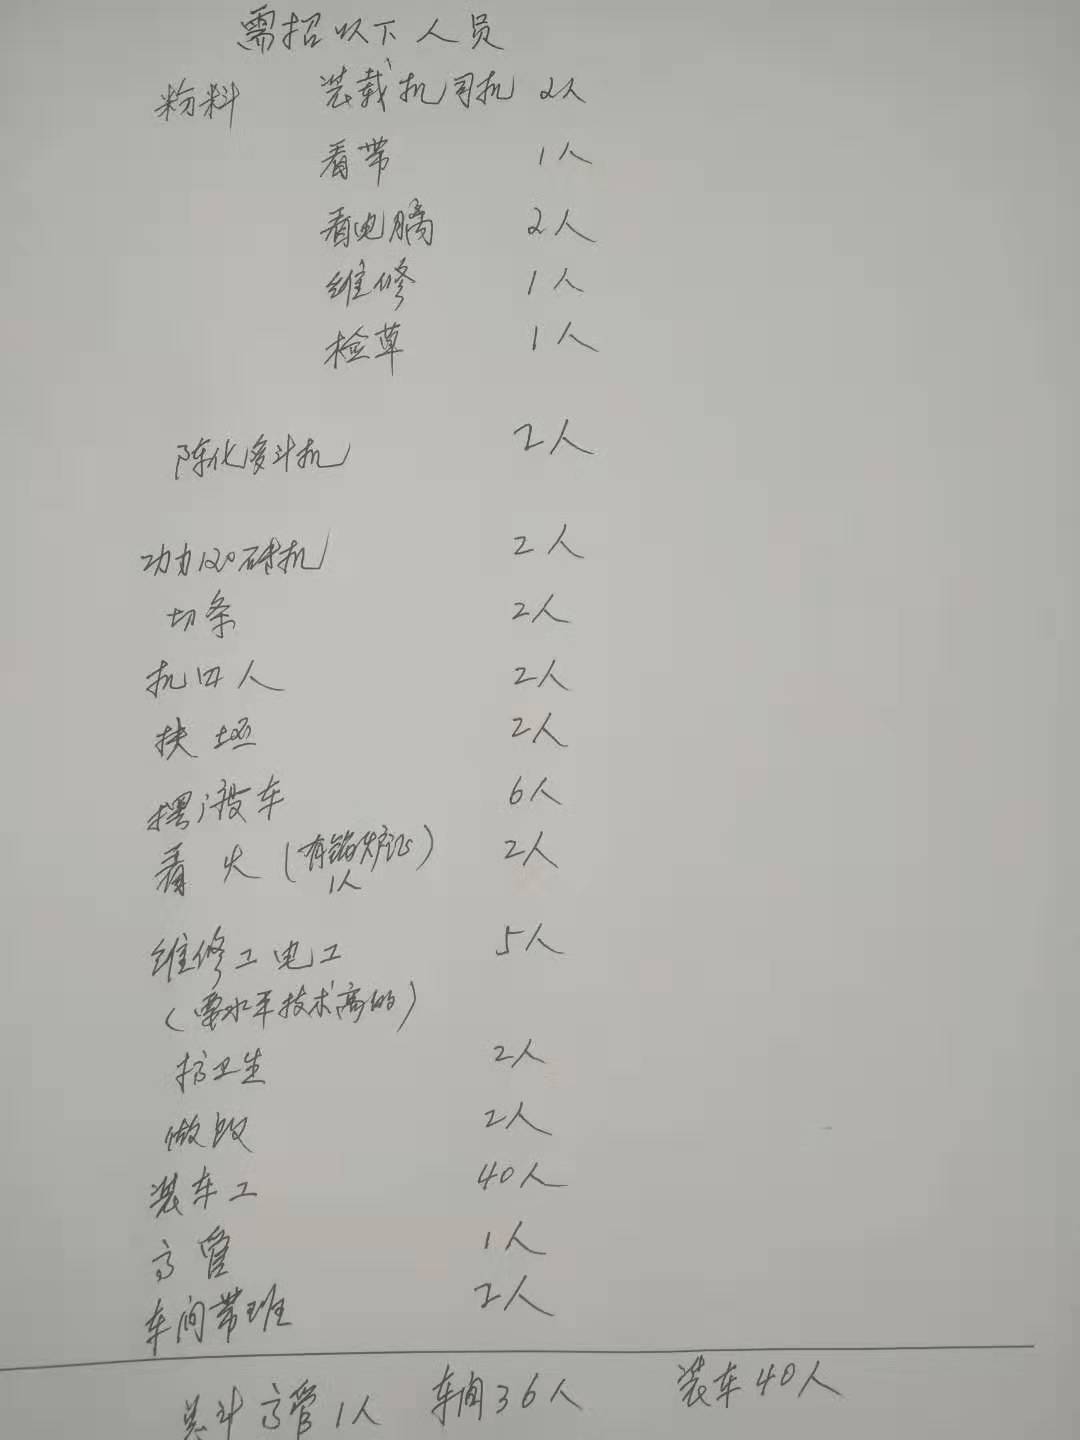 需招以下人员
粉料 装载机司机 2人
看带 1人
看电脑 2人
维修 1人
检草 1人
陈化多斗机 2人
砖机 2人
切条 2人
机口人 2人
扶坯 2人
摆渡车 6人
看火(有锅炉证) 2人
1人
维修工电工 5人
(要水平技术高的)
护卫生 2人
做饭 2人
装车工 40人
高管 1人
车间带班 2人
总计 高管1人 车间36人 装车40人